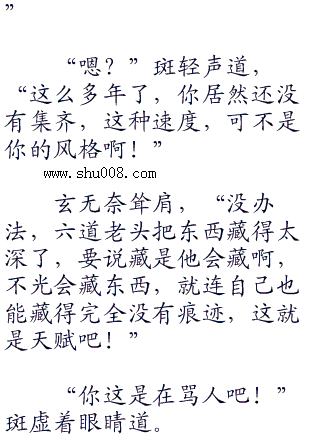 ”
“嗯？”斑轻声道，
“这么多年了，你居然还没
有集齐，这种速度，可不是
你的风格啊！”
www.shu008.com
玄无奈耸肩，“没办
法，六道老头把东西藏得太
深了，要说藏是他会藏啊，
不光会藏东西，就连自己也
能藏得完全没有痕迹，这就
是天赋吧！”
“你这是在骂人吧！”
斑虚着眼睛道。